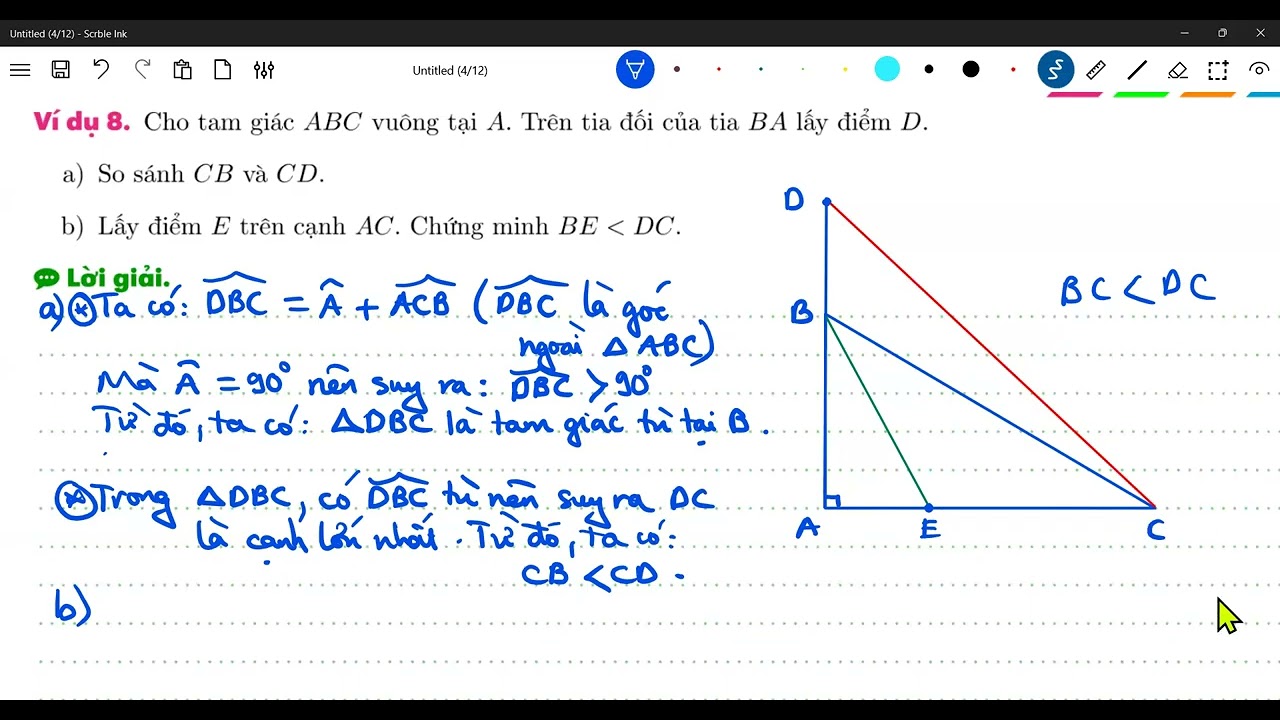 Untitled (4/12) - Scrble Ink
Untitled (4/12)
Ví dụ 8. Cho tam giác ABC vuông tại A. Trên tia đối của tia BA lấy điểm D.
a) So sánh CB và CD.
b) Lấy điểm E trên cạnh AC. Chứng minh BE < DC.
Lời giải.
a) * Ta có: \widehat{DBC} = \widehat{A} + \widehat{ACB} (\widehat{DBC} là góc
ngoài △ABC)
Mà \widehat{A} = 90° nên suy ra: \widehat{DBC} > 90°
Từ đó, ta có: △DBC là tam giác tù tại B.
* Trong △DBC, có \widehat{DBC} tù nên suy ra DC
là cạnh lớn nhất. Từ đó, ta có:
CB < CD.
b)
D
BC < DC
B
A
E
C